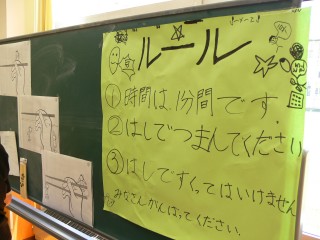 ルール
①時間は、1分間です
②はしでつまんでください
③はしですくってはいけません
みなさんがんばってください。